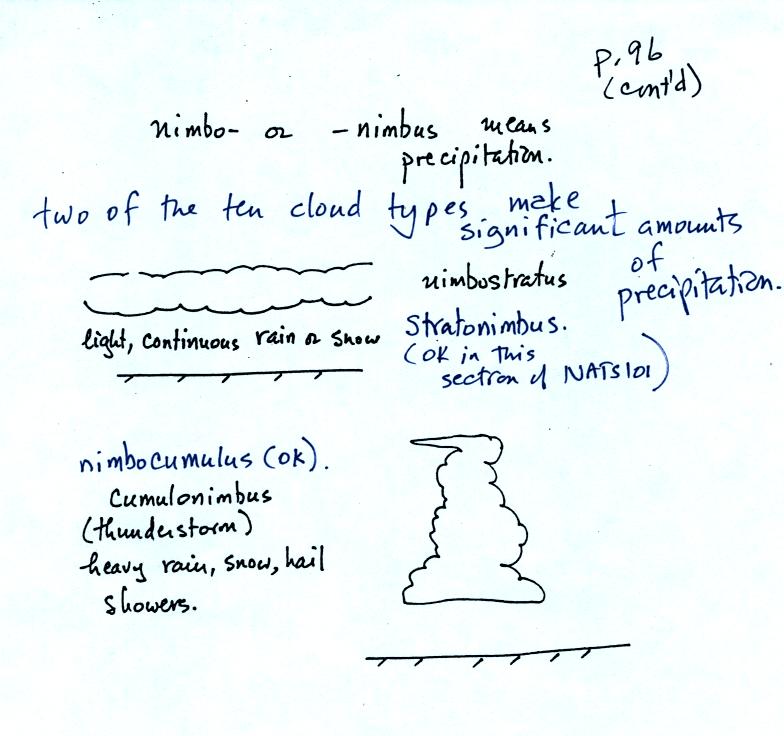 p. 96
(cont'd)
nimbo- or -nimbus means
precipitation.
two of the ten cloud types make
significant amounts
of
precipitation.
nimbostratus
stratonimbus.
(OK in this
section of NATS101)
light, continuous rain or snow
nimbocumulus (OK).
cumulonimbus
(thunderstorm)
heavy rain, snow, hail
showers.